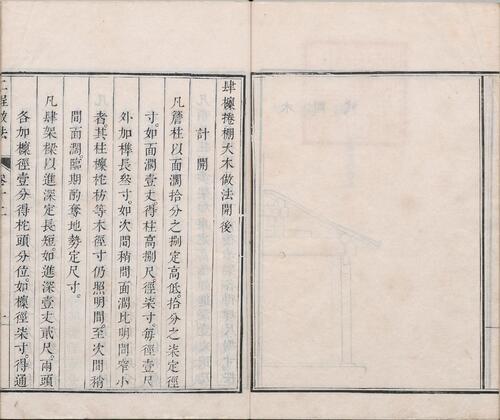 肆檁捲棚大木做法開後
計開
凡簷柱以面濶拾分之捌定高低拾分之柒定徑
寸如面濶壹丈得柱高捌尺徑柒寸毎徑壹尺
外加榫長叁寸如次間稍間面濶比明間窄小
者其柱檁柁枋等木徑寸仍照明間至次間稍
間面濶臨期酌奪地勢定尺寸
凡肆架樑以進深定長短如進深壹丈貳尺兩頭
各加檁徑壹分得柁頭分位如檁徑柒寸得通
工程做法